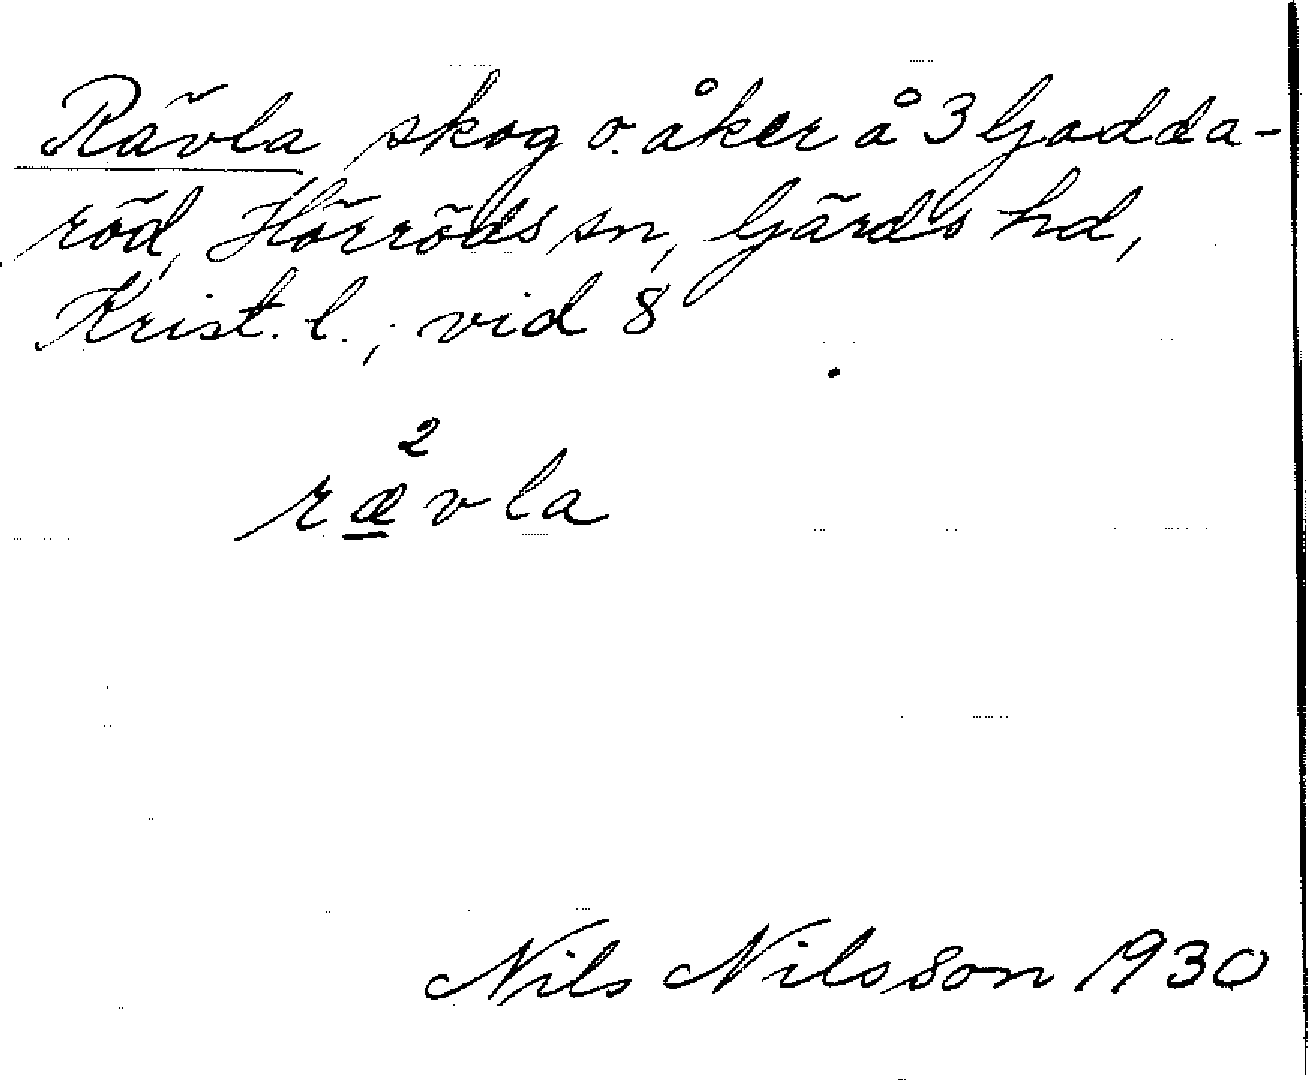 Rävla skog o. åker å 3 Gadda-
röd, Hörröds sn, Gärds hd,
Krist. l.; vid 8
2
rævla
Nils Nilsson 1930